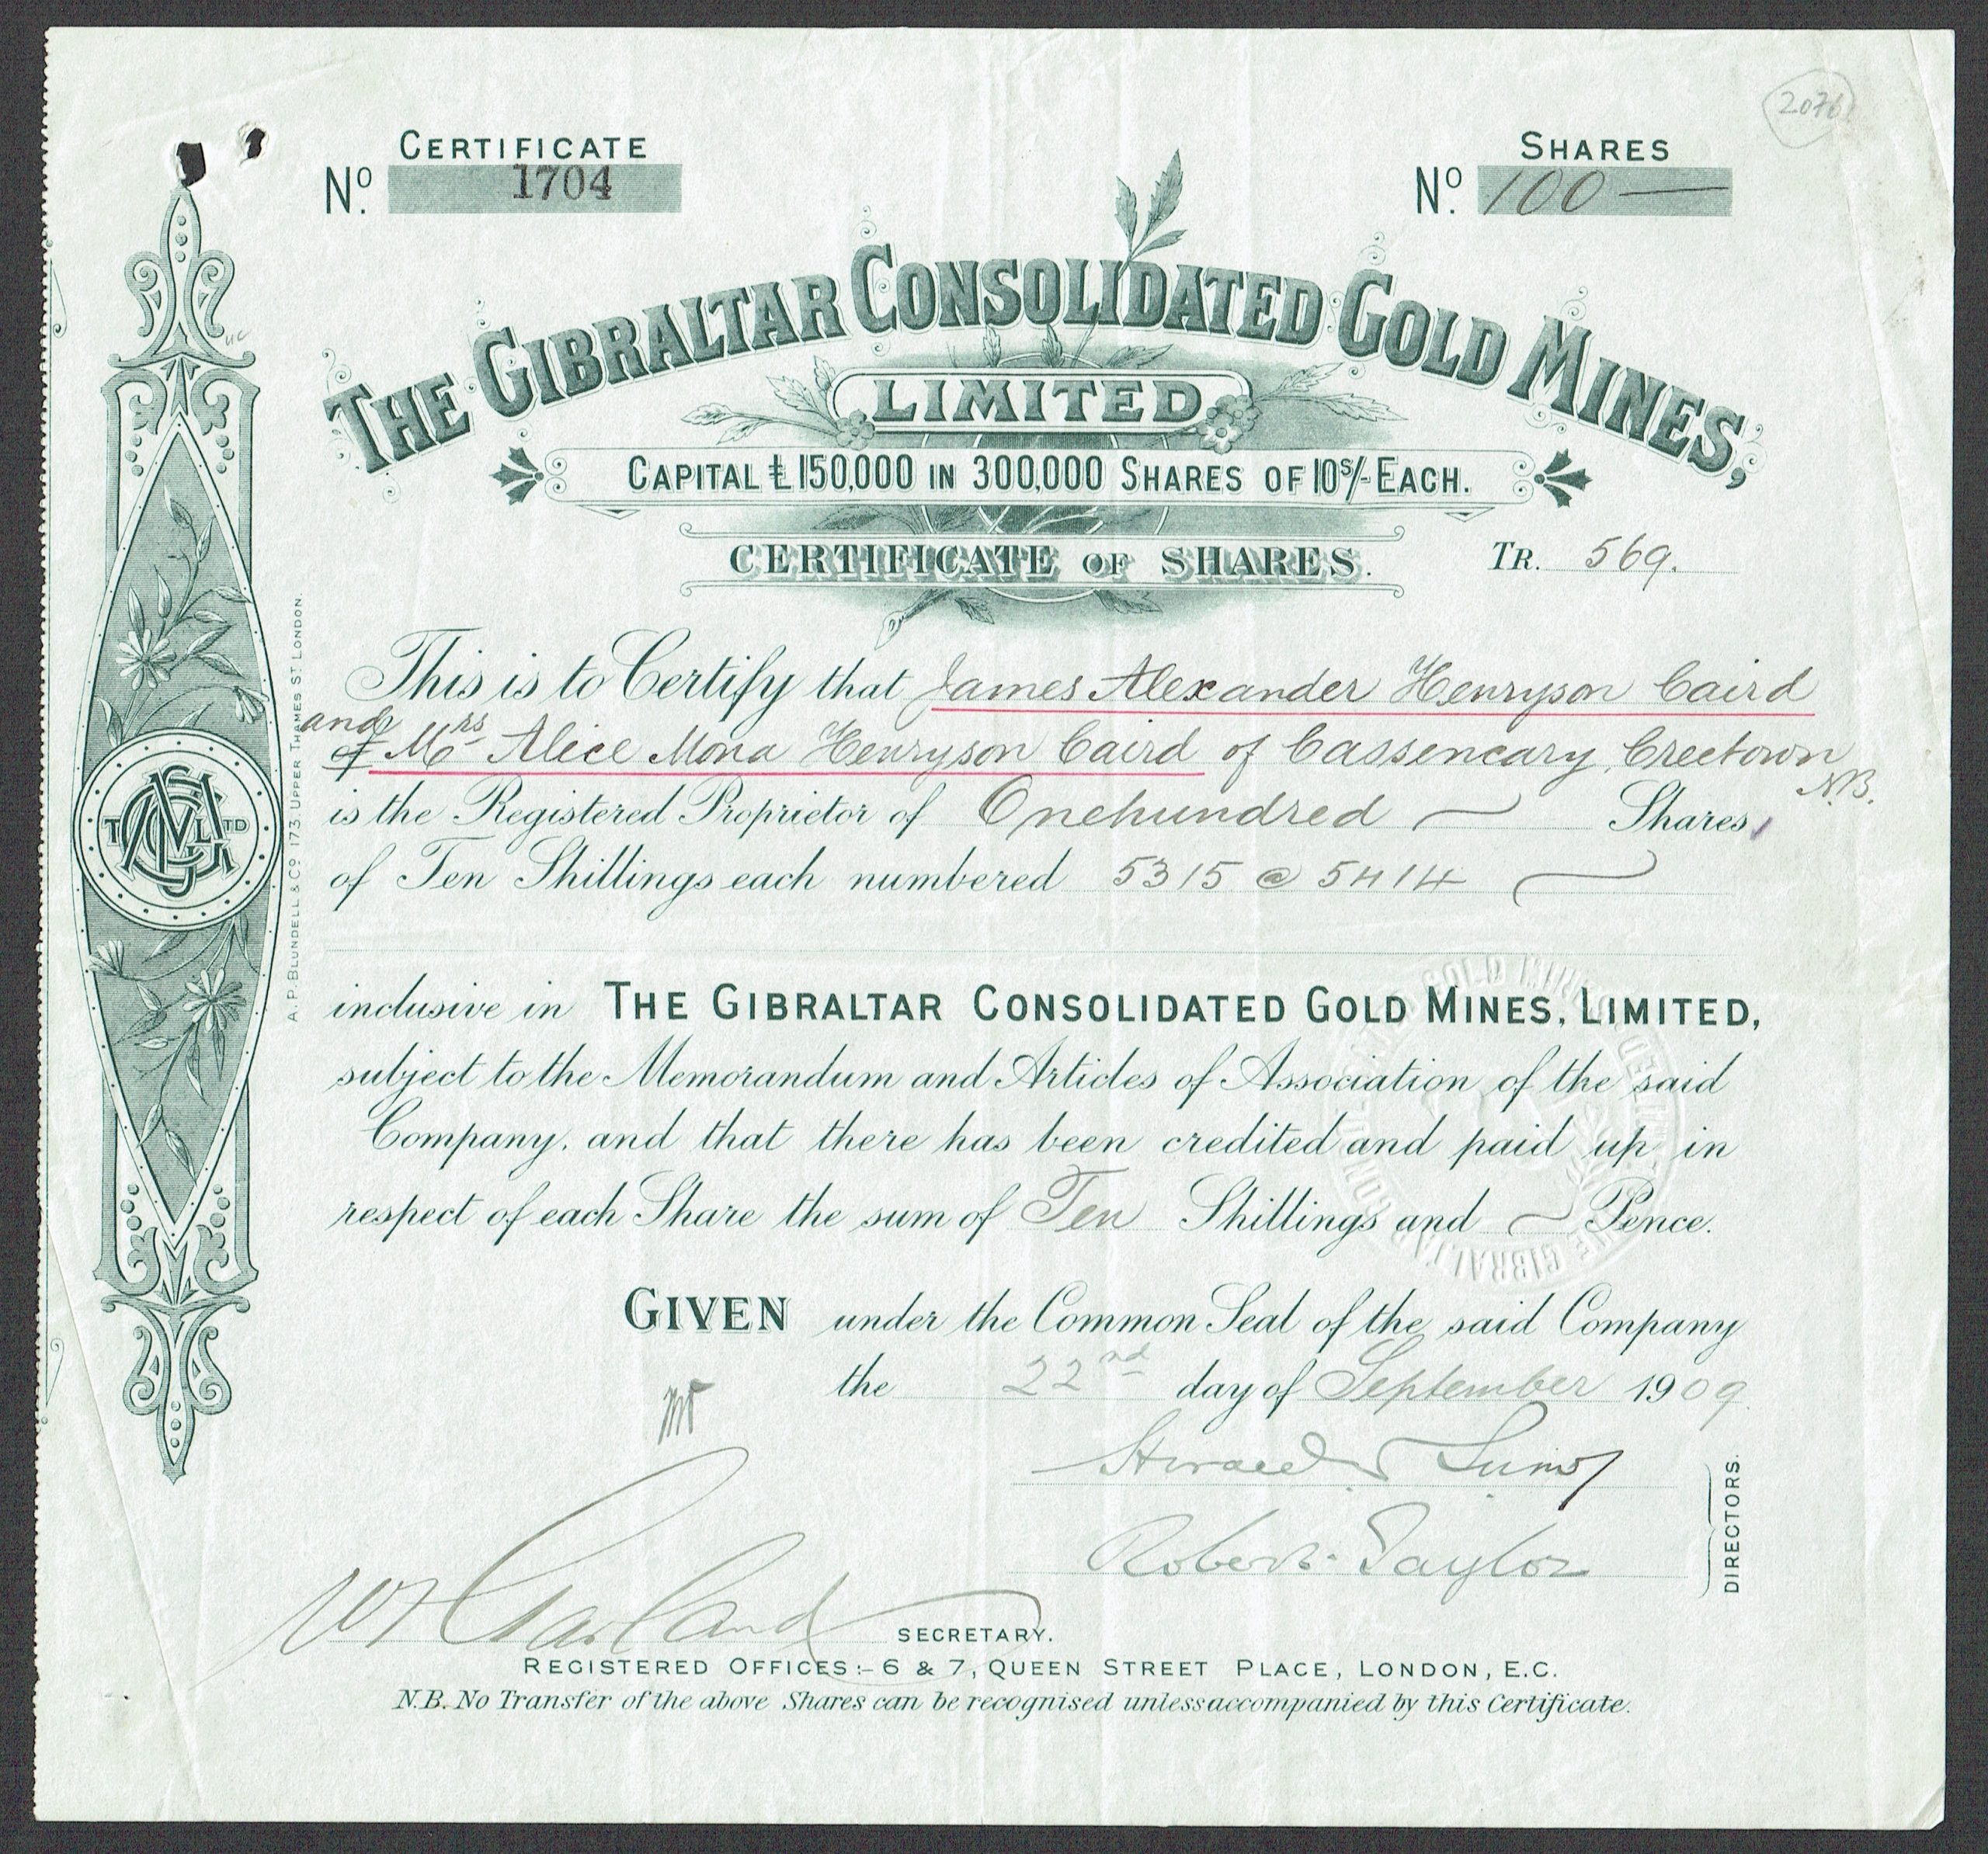 2076
CERTIFICATE
No. 1704
SHARES
No. 100 —
THE GIBRALTAR CONSOLIDATED GOLD MINES,
LIMITED
CAPITAL £150,000 IN 300,000 SHARES OF 10s/- EACH.
CERTIFICATE OF SHARES.
TR. 569.
This is to Certify that James Alexander Henryson Caird
and
of Mrs Alice Mona Henryson Caird of Cassencary, Creetown
N.B.
is the Registered Proprietor of Onehundred — Shares,
of Ten Shillings each numbered 5315 @ 5414 —
inclusive in THE GIBRALTAR CONSOLIDATED GOLD MINES, LIMITED,
subject to the Memorandum and Articles of Association of the said
Company, and that there has been credited and paid up in
respect of each Share the sum of Ten Shillings and — Pence.
GIVEN under the Common Seal of the said Company
the 22nd day of September 1909
Robert Taylor
DIRECTORS.
Garland
SECRETARY.
REGISTERED OFFICES:- 6 & 7, QUEEN STREET PLACE, LONDON, E.C.
N.B. No Transfer of the above Shares can be recognised unless accompanied by this Certificate.
A. P. BLUNDELL & CO. 173 UPPER THAMES ST. LONDON.
T GCM L TD